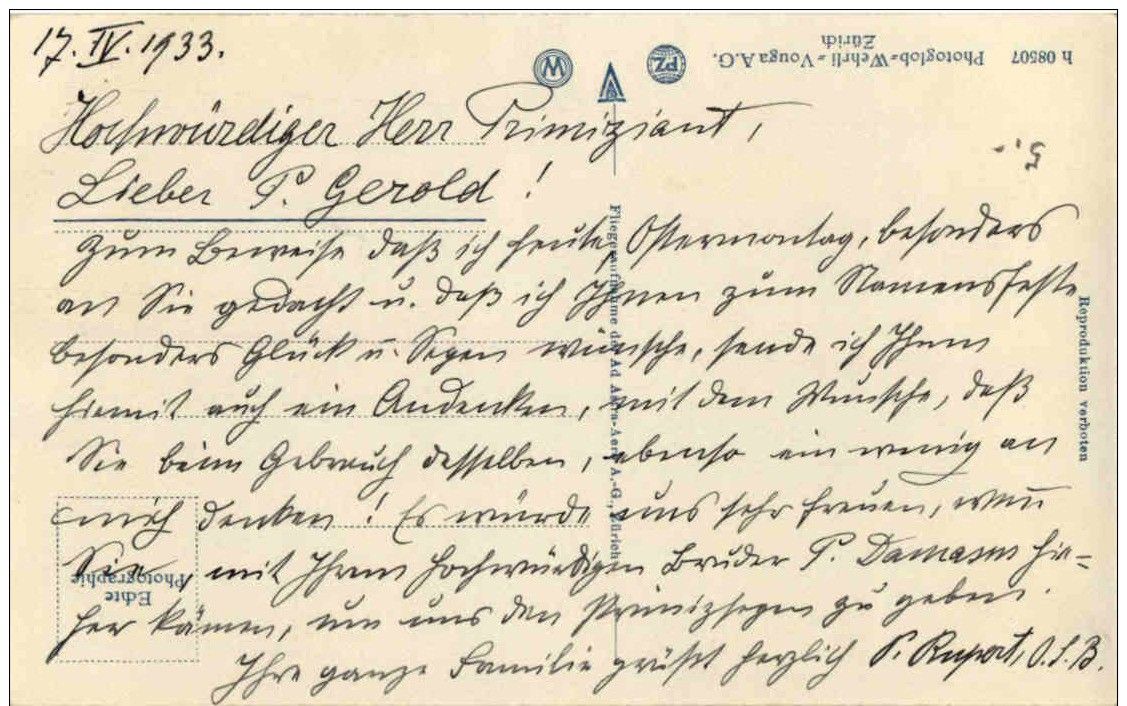 17. IV. 1933.
h 08507 Photoglob-Wehrli - Vouga A.G.
Zürich
PZ
5.-
Hochwürdiger Herr Primiziant,
Lieber P. Gerold!
Zum Beweise daß ich heute, Ostermontag, besonders
an Sie gedacht u. daß ich Ihnen zum Namensfeste
besonders Glück u. Segen wünsche, sende ich Ihnen
hiemit auch ein Andenken, mit dem Wunsche, daß
Sie beim Gebrauch desselben, ebenso ein wenig an
mich denken! Es würde uns sehr freuen, wenn
Sie mit Ihrem hochwürdigen Bruder P. Damasus hie=
her kämen, um uns den Primizsegen zu geben.
Ihre ganze Familie grüßt herzlich P. Rupert, O.S.B.
Fliegeraufnahme der Ad Astra-Aero A.-G., Zürich
Reproduktion verboten
Echte
Photographie